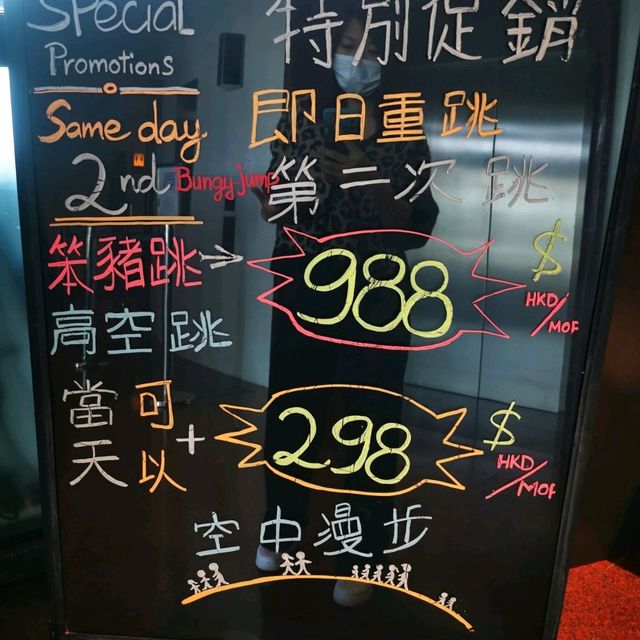 Special 特別促銷
Promotions
Same day 即日重跳
2nd Bungy-jump 第二次跳
笨豬跳→ 988 $
HKD/MOP
高空跳
當天可以+ 298 $
HKD/MOP
空中漫步